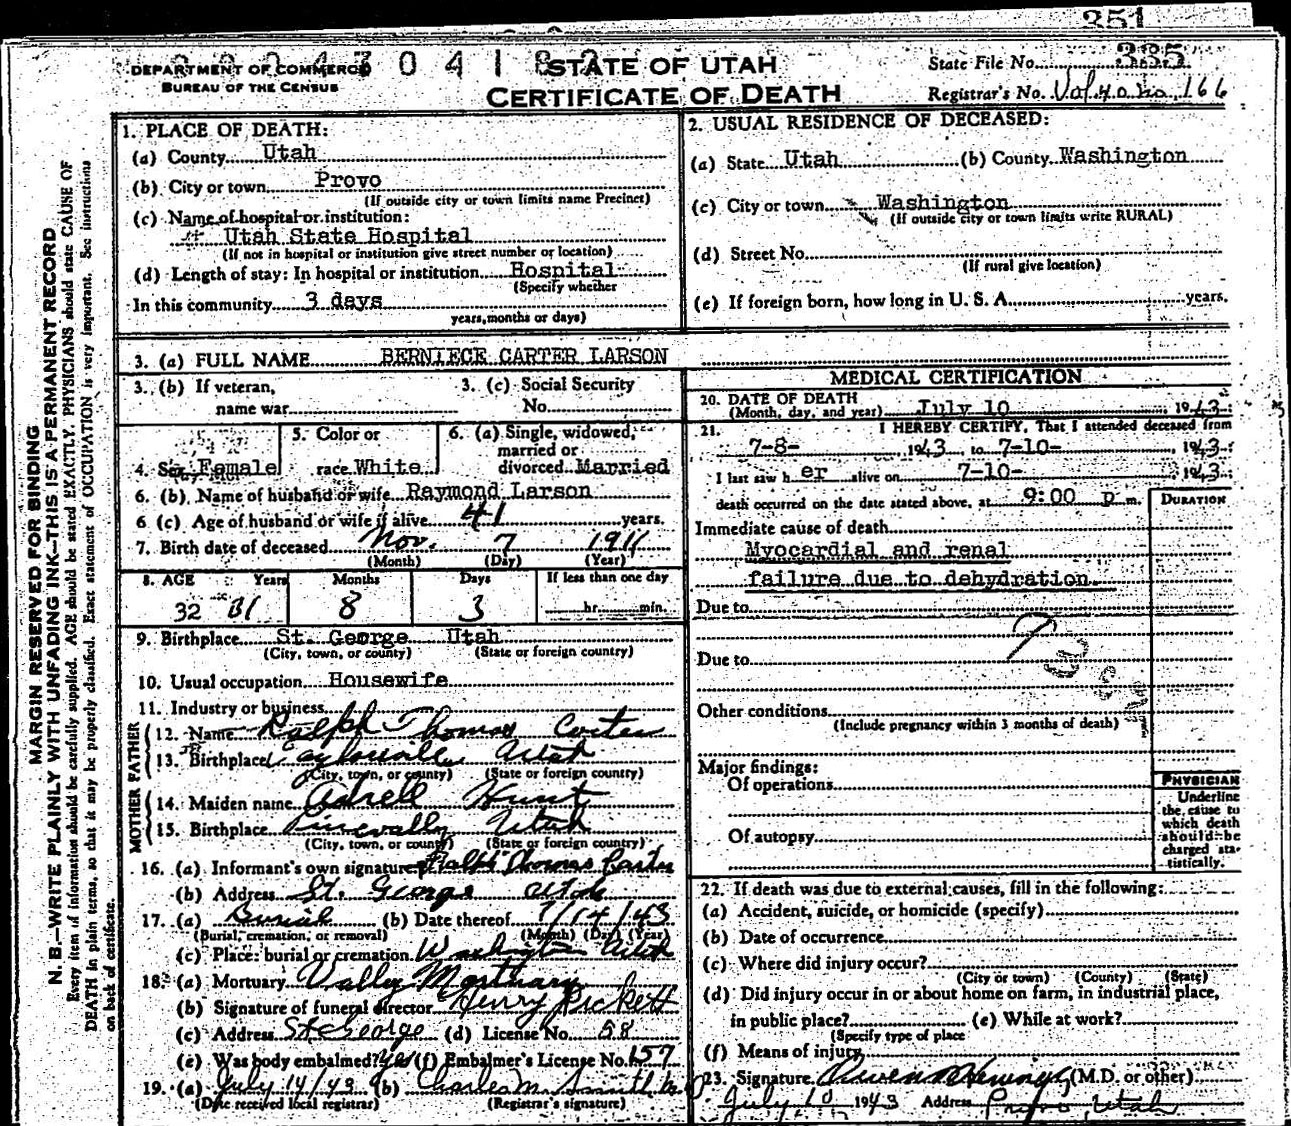 351
2 0 0 4 7 0 4 1 8 2
DEPARTMENT OF COMMERCE
BUREAU OF THE CENSUS
STATE OF UTAH
CERTIFICATE OF DEATH
State File No. 335
Registrar's No. Vol. 40 no. 166
MARGIN RESERVED FOR BINDING
N. B.—WRITE PLAINLY WITH UNFADING INK—THIS IS A PERMANENT RECORD
Every item of information should be carefully supplied. AGE should be stated EXACTLY. PHYSICIANS should state CAUSE OF
DEATH in plain terms, so that it may be properly classified. Exact statement of OCCUPATION is very important. See instructions
on back of certificate.
1. PLACE OF DEATH:
(a) County Utah
(b) City or town Provo
(If outside city or town limits name Precinct)
(c) Name of hospital or institution:
Utah State Hospital
(If not in hospital or institution give street number or location)
(d) Length of stay: In hospital or institution Hospital
(Specify whether
In this community 3 days
years, months or days)
2. USUAL RESIDENCE OF DECEASED:
(a) State Utah (b) County Washington
(c) City or town Washington
(If outside city or town limits write RURAL)
(d) Street No.
(If rural give location)
(e) If foreign born, how long in U. S. A. years.
3. (a) FULL NAME BERNIECE CARTER LARSON
3. (b) If veteran,
name war
3. (c) Social Security
No.
4. Sex Female
5. Color or
race White
6. (a) Single, widowed,
married or
divorced Married
6. (b) Name of husband or wife Raymond Larson
6 (c) Age of husband or wife if alive 41 years.
7. Birth date of deceased Nov. 7 1911
(Month) (Day) (Year)
8. AGE Years Months Days If less than one day
32 31 8 3 hr. min.
9. Birthplace St. George Utah
(City, town, or county) (State or foreign country)
10. Usual occupation Housewife
11. Industry or business
FATHER
12. Name Ralph Thomas Carter
13. Birthplace Taylorville Utah
(City, town, or county) (State or foreign country)
MOTHER
14. Maiden name Adrell Hunt
15. Birthplace Pinevally Utah
(City, town, or county) (State or foreign country)
16. (a) Informant's own signature Ralph Thomas Carter
(b) Address St. George Utah
17. (a) Burial (b) Date thereof 7/14/43
(Burial, cremation, or removal) (Month) (Day) (Year)
(c) Place: burial or cremation Washington Utah
18. (a) Mortuary Vally Mortuary
(b) Signature of funeral director Henry Pickett
(c) Address St George (d) License No. 58
(e) Was body embalmed? Yes (f) Embalmer's License No. 157
19. (a) July 14/43 (b) Charles M. Smith
(Date received local registrar) (Registrar's signature)
MEDICAL CERTIFICATION
20. DATE OF DEATH
(Month, day, and year) July 10 1943
21. I HEREBY CERTIFY, That I attended deceased from
7-8- 1943 to 7-10- 1943
I last saw her alive on 7-10- 1943
death occurred on the date stated above, at 9:00 p m.
DURATION
Immediate cause of death
Myocardial and renal
failure due to dehydration.
Due to
Due to
Other conditions
(Include pregnancy within 3 months of death)
Major findings:
Of operations
Of autopsy
PHYSICIAN
Underline
the cause to
which death
should be
charged sta-
tistically.
22. If death was due to external causes, fill in the following:
(a) Accident, suicide, or homicide (specify)
(b) Date of occurrence
(c) Where did injury occur?
(City or town) (County) (State)
(d) Did injury occur in or about home on farm, in industrial place,
in public place? (e) While at work?
(Specify type of place
(f) Means of injury
23. Signature (M.D. or other)
July 10 1943 Address Provo, Utah